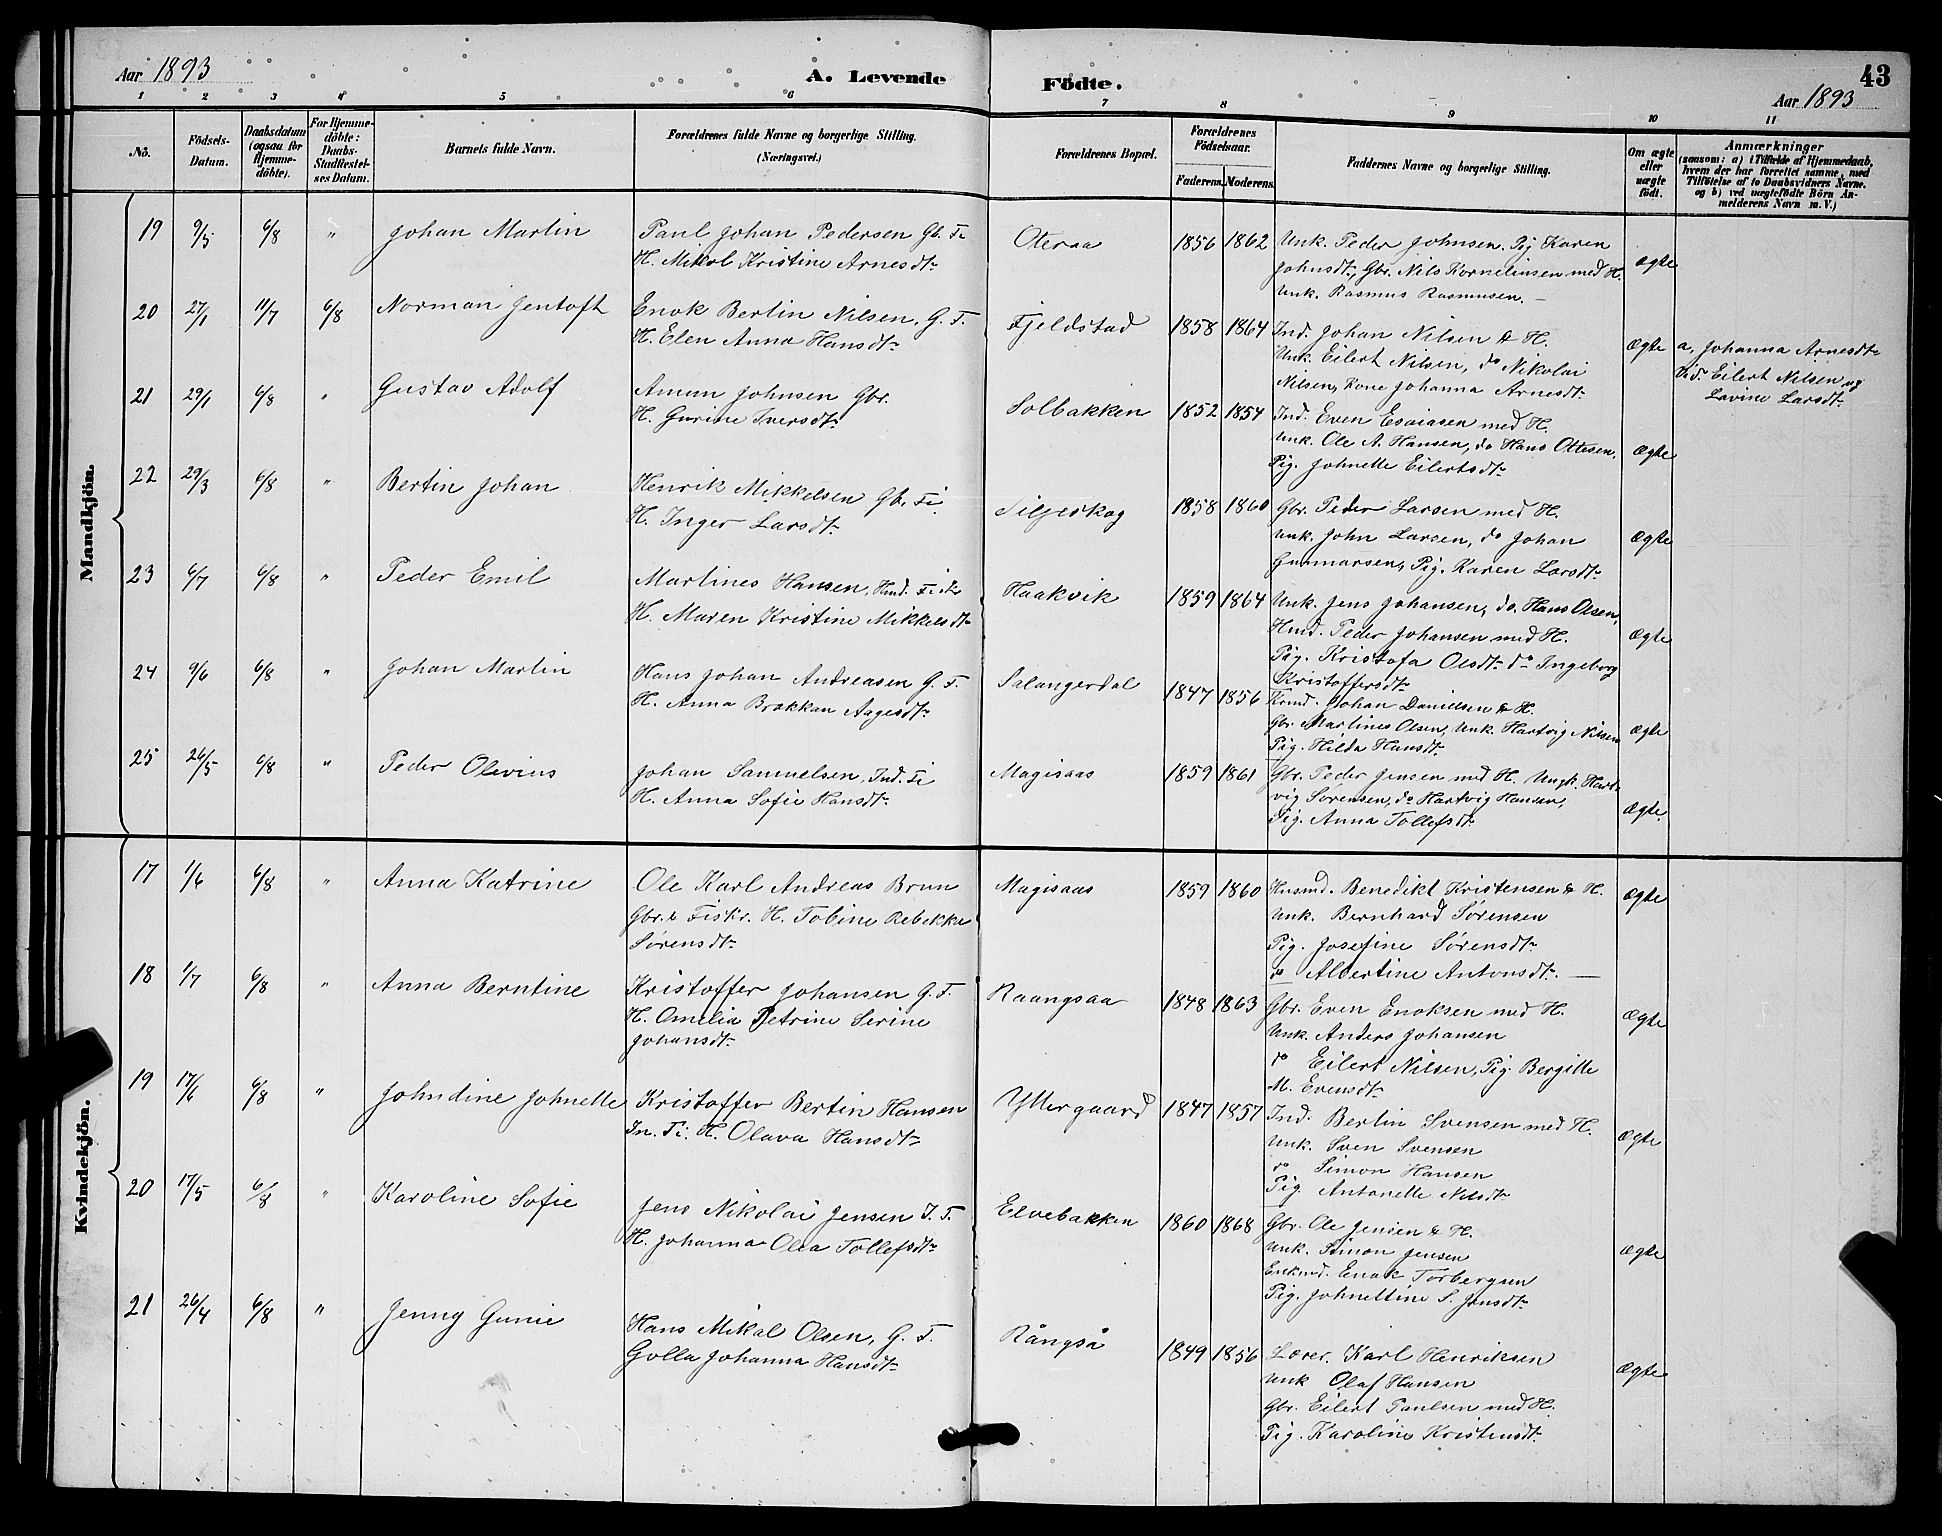 Aar 1893
A. Levende Födte.
Aar 1893
43
1 2 3 4 5 6 7 8 9 10 11
No.
Födsels-Datum.
Daabsdatum (ogsaa for Hjemme-döbte).
For Hjemme-döbte: Daabs-Stadfæstel-ses Datum.
Barnets fulde Navn.
Forældrenes fulde Navne og borgerlige Stilling. (Næringsvei.)
Forældrenes Bopæl.
Forældrenes Födselsaar.
Faderens. Moderens.
Faddernes Navne og borgerlige Stilling.
Om ægte eller uægte födt.
Anmærkninger
(saasom: a) i Tilfælde af Hjemmedaab, hvem der har forrettet samme, med Tilföielse af to Daabsvidners Navne. og b) ved uægtefödte Börn An-melderens Navn m. V.)
Mandkjön.
19 9/5 6/8 " Johan Martin
Paul Johan Pedersen Gb. Fi
H. Mikal Kristine Arnesdtr
Oteraa 1856 1862
Unk. Peder Johnsen. Pig Karen
Johnsdtr, Gbr. Nils Kornelinsen med H.
Unk. Rasmus Rasmussen. —
ægte
20 27/1 11/7 6/8 Norman Jentoft
Enok Bertin Nilsen. G. F.
H. Elen Anna Hansdtr
Fjeldstad 1858 1864
Ind. Johan Nilsen & H.
Unk. Eilert Nilsen, do Nikolai
Nilsen, Kone Johanna Arnesdtr
Ægte
a, Johanna Arnesdtr
Vid. Eilert Nilsen og
Lavine Larsdtr
21 29/1 6/8 " Gustav Adolf
Amun Johnsen Gbr.
H. Gurine Iversdtr
Solbakken 1852 1854
Ind. Even Esaiasen med H.
Unk. Ole A. Hansen, do Hans Ottesen.
Pig. Johnette Eilertsdtr
Ægte
22 29/3 6/8 " Bertin Johan
Henrik Mikkelsen Gb. Fi
H. Inger Larsdtr
Siljeskog 1858 1860
Gbr. Peder Larsen med H.
Unk. John Larsen, do Johan
Gunnarsen, Pig. Karen Larsdtr
Ægte
23 6/7 6/8 " Peder Emil
Martines Hansen, Hmd. Fisk
H. Maren Kristine Mikkelsdtr
Haakvik 1859 1864
Unk. Jens Johansen, do. Hans Olsen,
Hmd. Peder Johansen med H.
Pig. Kristofa Olsdtr do Ingeborg
Kristoffersdtr
Ægte
24 9/6 6/8 " Johan Martin
Hans Johan Andreasen G. F.
H. Anna Brokkan Aagesdtr
Salangerdal 1847 1856
Johan Danielsen & H.
Gbr. Martines Olsen, Unk. Hartvig Nilsen
Pig. Hilda Hansdtr
Ægte
25 26/5 6/8 " Peder Olevius
Johan Samuelsen, Ind. Fi
H. Anna Sofie Hansdtr
Magisaas 1859 1861
Gbr. Peder Jensen med H. Ungk. Hart-
vig Sørensen, do Hartvig Hansen,
Pig. Anna Tollefsdtr
Ægte
Kvindekjön.
17 1/6 6/8 " Anna Katrine
Ole Karl Andreas Brun
Gbr. & Fiskr. H. Tobine Rebekka
Sørensdtr
Magisaas 1859 1860
Husmd. Benedikt Kristensen & H.
Unk. Bernhard Sørensen
Pig. Josefine Sørensdtr
do Albertine Antonsdtr. —
Ægte
18 1/7 6/8 " Anna Berntine
Kristoffer Johansen G. F.
H. Omelia Petrine Serine
Johansdtr
Raangsaa 1848 1863
Gbr. Even Enoksen med H.
Unk. Anders Johansen
do Eilert Nilsen, Pig. Bergitte
M. Evensdtr
Ægte
19 17/6 6/8 " Johndine Johnette
Kristoffer Bertin Hansen
In. Fi. H. Olava Hansdtr
Yttergaard 1847 1857
Ind. Bertin Svensen med H.
Unk. Sven Svensen
do Simon Hansen
Pig. Antonette Nilsdtr
Ægte
20 17/5 6/8 " Karoline Sofie
Jens Nikolai Jensen I. F.
H. Johanna Olea Tollefsdtr
Elvebakken 1860 1868
Gbr. Ole Jensen & H.
Unk. Simon Jensen
Enkmd. Enok Torbergsen
Pig. Johnettine S. Jonsdtr
Ægte
21 26/4 6/8 " Jenny Gunie
Hans Mikal Olsen, G. F.
Golla Johanna Hansdtr
Rångså 1849 1856
Lærer. Karl Henriksen
Unk Olaf Hansen
Gbr. Eilert Paulsen med H.
Pig. Karoline Kristensdtr
Ægte